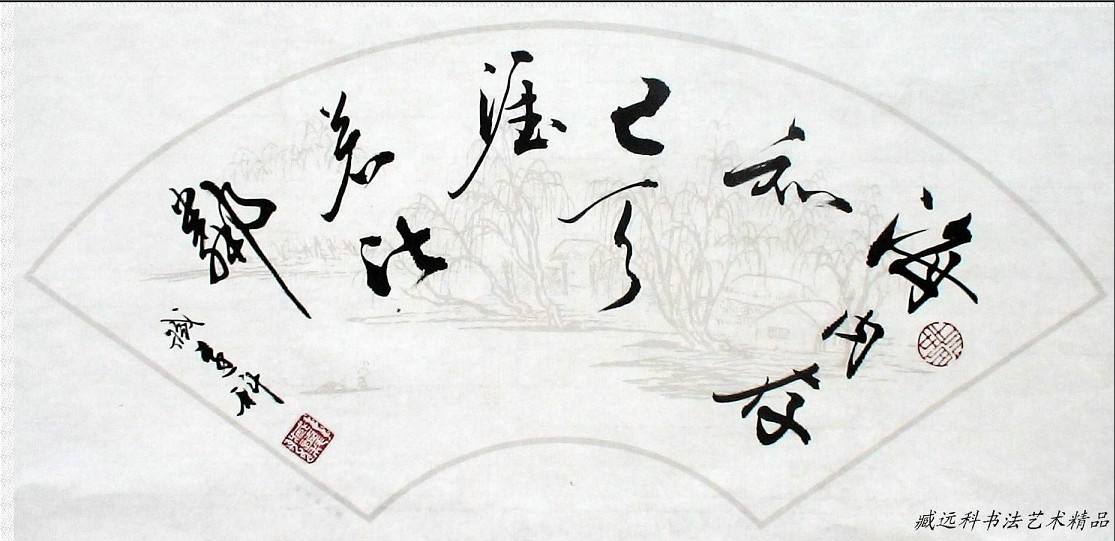 海内存知己天涯若比鄰
臧遠科
臧远科书法艺术精品